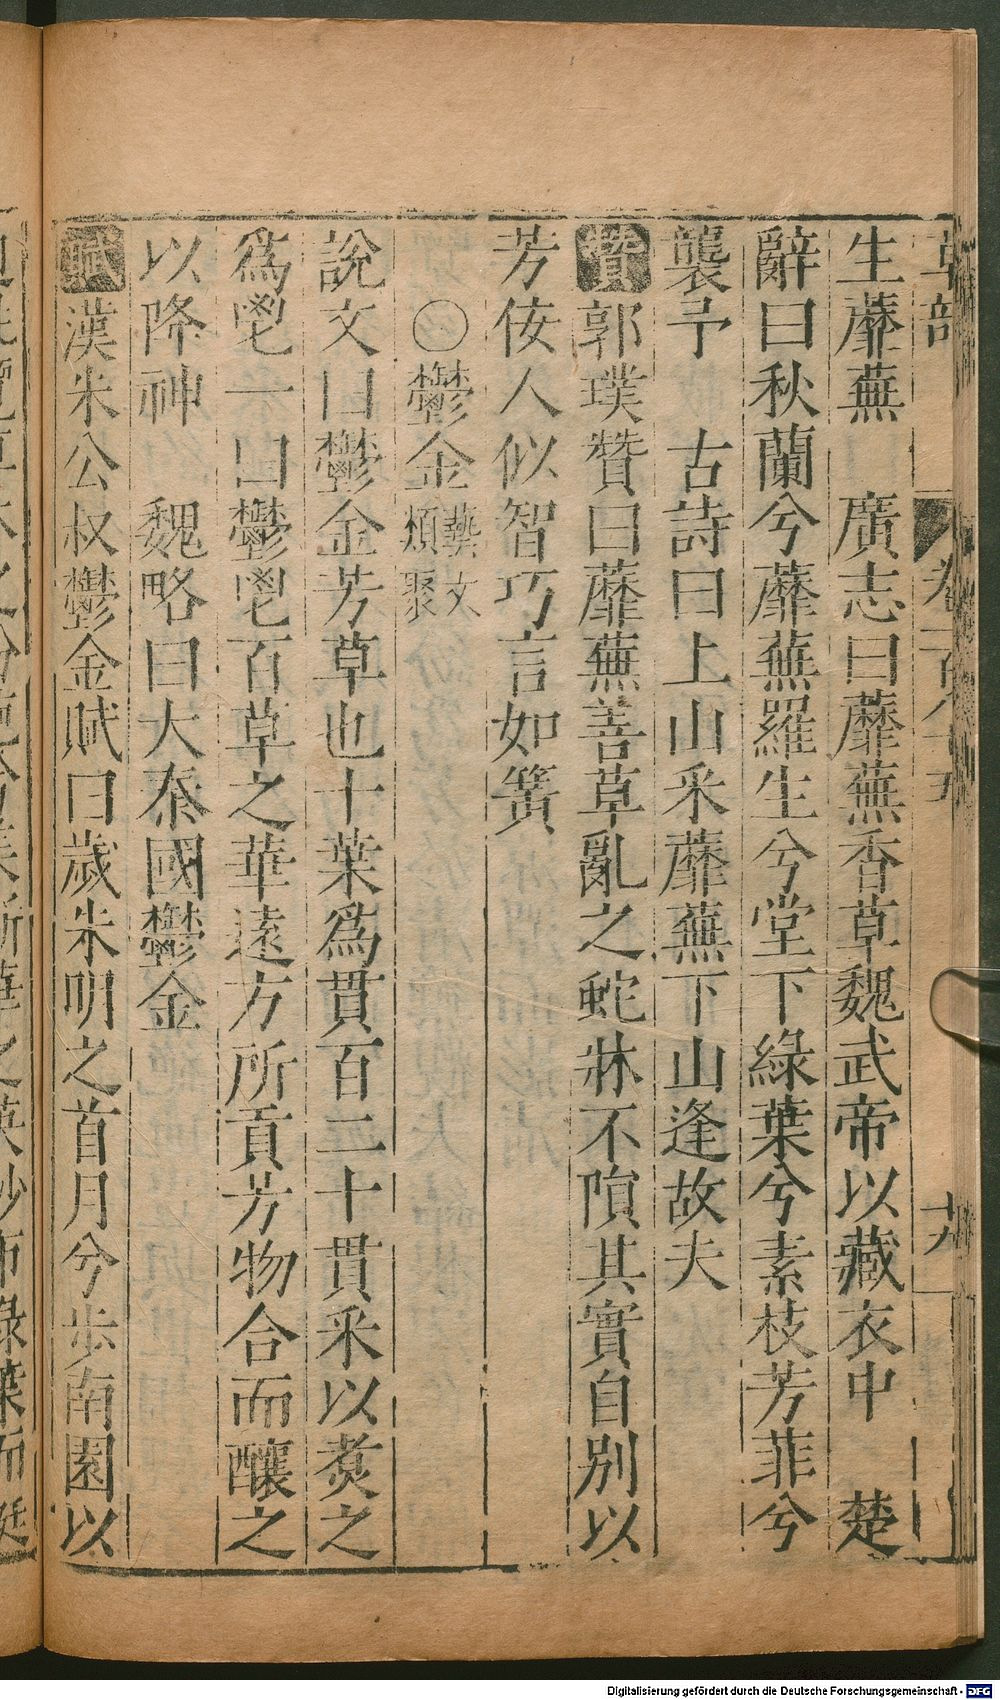 草部
卷一百八十五
十九
生蘼蕪　廣志曰蘼蕪香草魏武帝以藏衣中　楚
辭曰秋蘭兮蘼蕪羅生兮堂下綠葉兮素枝芳菲兮
襲予　古詩曰上山采蘼蕪下山逢故夫
贊郭璞贊曰蘼蕪善草亂之蛇牀不隕其實自別以
芳佞人似智巧言如簧
〇鬱金藝文類聚
說文曰鬱金芳草也十葉爲貫百二十貫采以煑之
爲鬯一曰鬱鬯百草之華遠方所貢芳物合而釀之
以降神　魏略曰大秦國鬱金
賦漢朱公叔鬱金賦曰歲朱明之首月兮步南園以
Digitalisierung gefördert durch die Deutsche Forschungsgemeinschaft - DFG